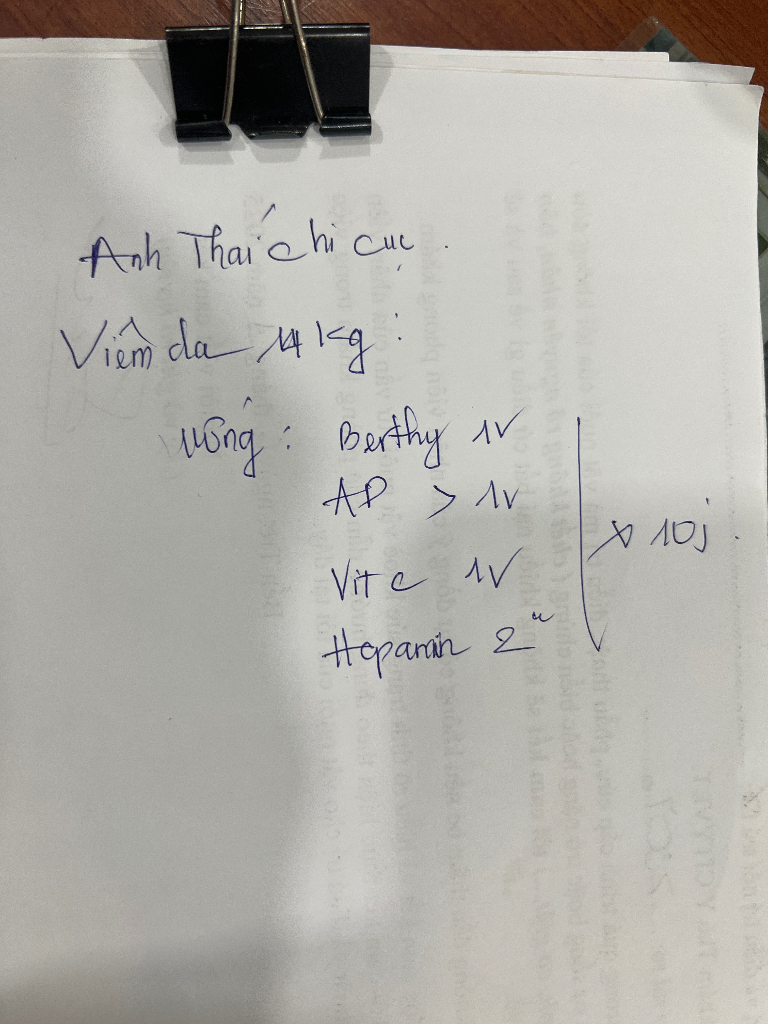 Anh Thái chi cục.
Viêm da 14 kg :
Uống : Berthy 1V
AD > 1V
Vit c 1V
Hepamin 2"
x 10j.